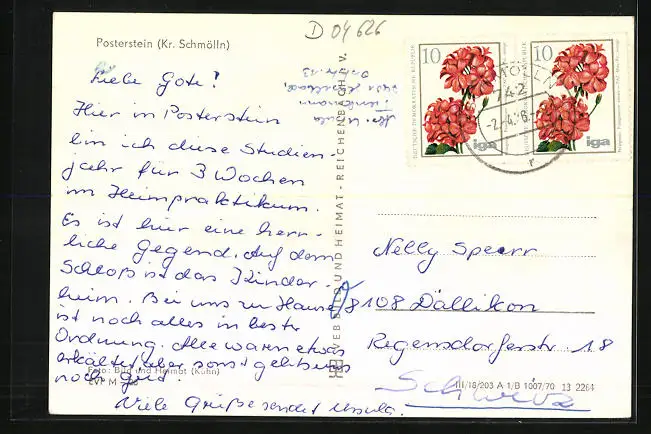 D 04626
Posterstein (Kr. Schmölln)
Liebe Gote!
Hier in Posterstein
bin ich diese Studien-
jahr für 3 Wochen
im Heimpraktikum.
Es ist hier eine herr-
liche Gegend. Auf dem
Schloß ist das Kinder-
heim. Bei uns zu Hause
ist noch alles in bester
Ordnung. Alle waren etwas
erkältet aber sonst geht es uns
noch gut.
Viele Grüße sendet Ursula.
Foto: Bild und Heimat (Kühn)
BILD UND HEIMAT - REICHENBACH i. V.
10
DEUTSCHE DEMOKRATISCHE REPUBLIK
iga
10
iga
SCHMÖLLN
742
-2.-4.76.
r
Nelly Speerr
8108 Dällikon
Regensdorferstr 18
Schweiz
III/18/203 A 1/B 1007/70 13 2264